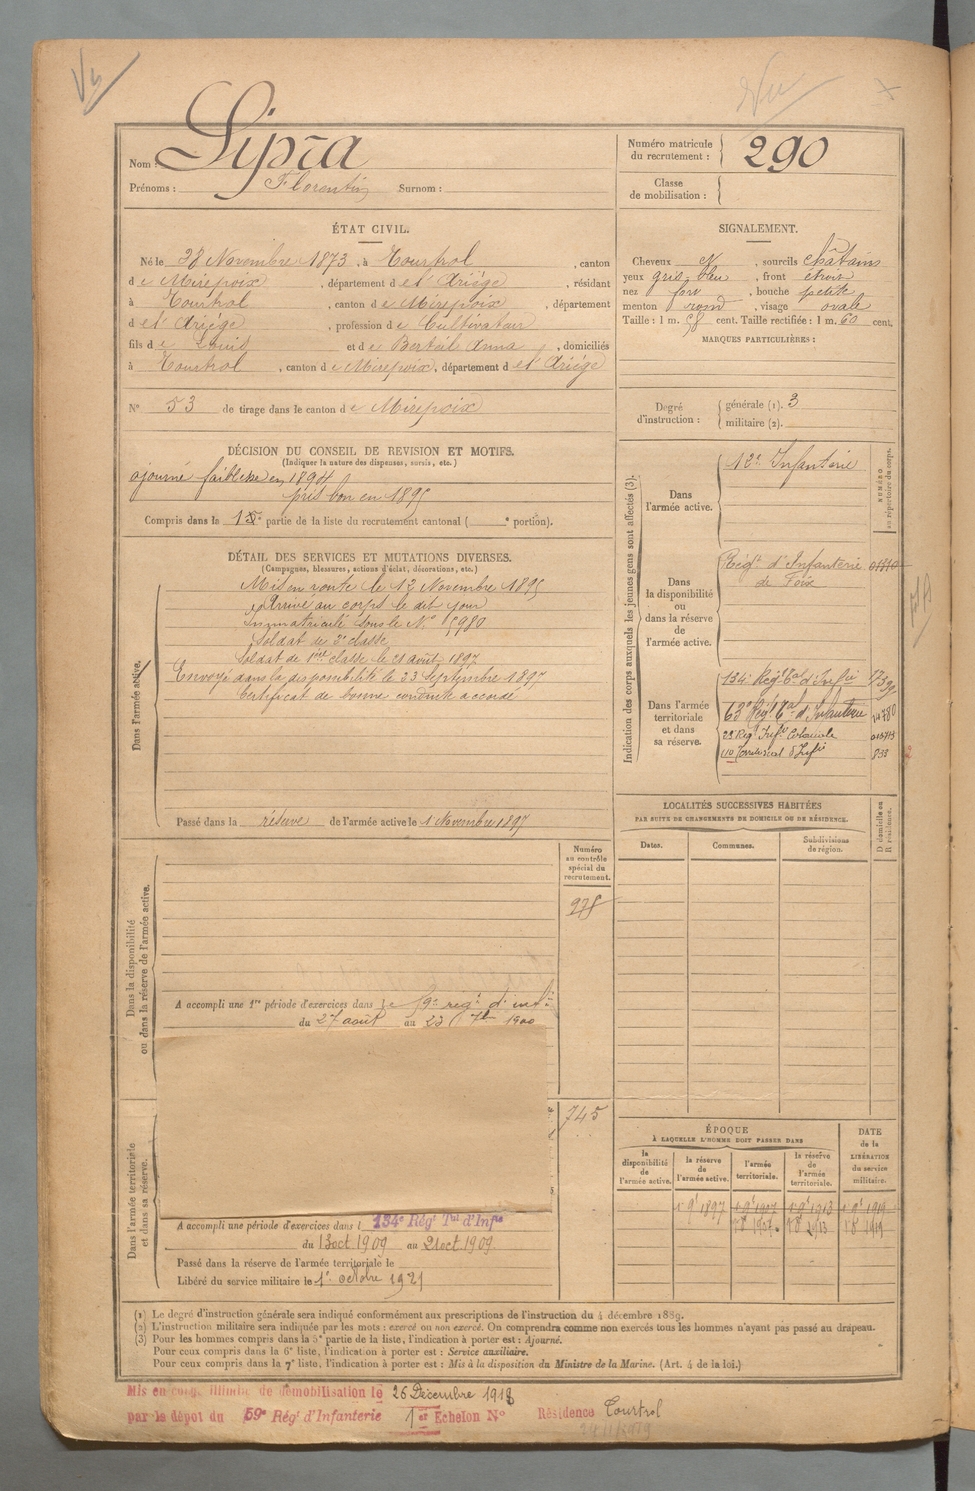 Nom : Sipra
Prénoms : Florentin Surnom :
Numéro matricule du recrutement : 290
Classe de mobilisation :
ÉTAT CIVIL.
Né le 28 Novembre 1873, à Tourtrol, canton
de Mirepoix, département de l'Ariège, résidant
à Tourtrol, canton de Mirepoix, département
de l'Ariège, profession de Cultivateur
fils de Louis et de Bertéil Anna, domiciliés
à Tourtrol, canton de Mirepoix, département de l'Ariège
N° 53 de tirage dans le canton de Mirepoix
SIGNALEMENT.
Cheveux N, sourcils châtains
yeux gris bleu, front étroit
nez fort, bouche petite
menton rond, visage ovale
Taille : 1 m. 58 cent. Taille rectifiée : 1 m. 60 cent.
MARQUES PARTICULIÈRES :
Degré d'instruction : générale (1). 3
militaire (2).
DÉCISION DU CONSEIL DE REVISION ET MOTIFS.
(Indiquer la nature des dispenses, sursis, etc.)
ajourné faiblesse en 1894
pris bon en 1895
Compris dans la partie de la liste du recrutement cantonal ( e portion).
DÉTAIL DES SERVICES ET MUTATIONS DIVERSES.
(Campagnes, blessures, actions d'éclat, décorations, etc.)
Dans l'armée active.
Mis en route le 12 Novembre 1895
Arrivé au corps le dit jour
Immatriculé sous le N° 5980
Soldat de 2e classe
Soldat de 1ère classe le 21 août 1897
Envoyé dans la disponibilité le 23 Septembre 1897
Certificat de bonne conduite accordé
Passé dans la réserve de l'armée active le 1 Novembre 1897
Indication des corps auxquels les jeunes gens sont affectés (3).
NUMÉRO au répertoire du corps.
Dans l'armée active.
12e Infanterie
Dans la disponibilité ou dans la réserve de l'armée active.
Régt d'Infanterie
de Foix
Dans l'armée territoriale et dans sa réserve.
134e Régt Tal d'Infie
63e Régt Tal d'Infanterie
22 Régt Infie Coloniale
110 Territorial d'Infie 833
LOCALITÉS SUCCESSIVES HABITÉES
PAR SUITE DE CHANGEMENTS DE DOMICILE OU DE RÉSIDENCE.
Dates. Communes. Subdivisions de région. D domicile ou R résidence.
Dans la disponibilité ou dans la réserve de l'armée active.
Numéro au contrôle spécial du recrutement.
A accompli une 1re période d'exercices dans le 59e régt d'infie
du 27 août au 23 7bre 1900
Dans l'armée territoriale et dans sa réserve.
745
A accompli une période d'exercices dans l 134e Régt Tal d'Infie
du 13 oct. 1909 au 21 oct. 1909
Passé dans la réserve de l'armée territoriale le
Libéré du service militaire le 1er octobre 1921
ÉPOQUE
À LAQUELLE L'HOMME DOIT PASSER DANS
la disponibilité de l'armée active. la réserve de l'armée active. l'armée territoriale. la réserve de l'armée territoriale.
DATE de la LIBÉRATION du service militaire.
(1) Le degré d'instruction générale sera indiqué conformément aux prescriptions de l'instruction du 4 décembre 1889.
(2) L'instruction militaire sera indiquée par les mots : exercé ou non exercé. On comprendra comme non exercés tous les hommes n'ayant pas passé au drapeau.
(3) Pour les hommes compris dans la 5e partie de la liste, l'indication à porter est : Ajourné.
Pour ceux compris dans la 6e liste, l'indication à porter est : Service auxiliaire.
Pour ceux compris dans la 7e liste, l'indication à porter est : Mis à la disposition du Ministre de la Marine. (Art. 4 de la loi.)
Mis en congé illimité de démobilisation le 26 Décembre 1918
par le dépôt du 59e Régt d'Infanterie 1er Echelon N° Résidence Tourtrol